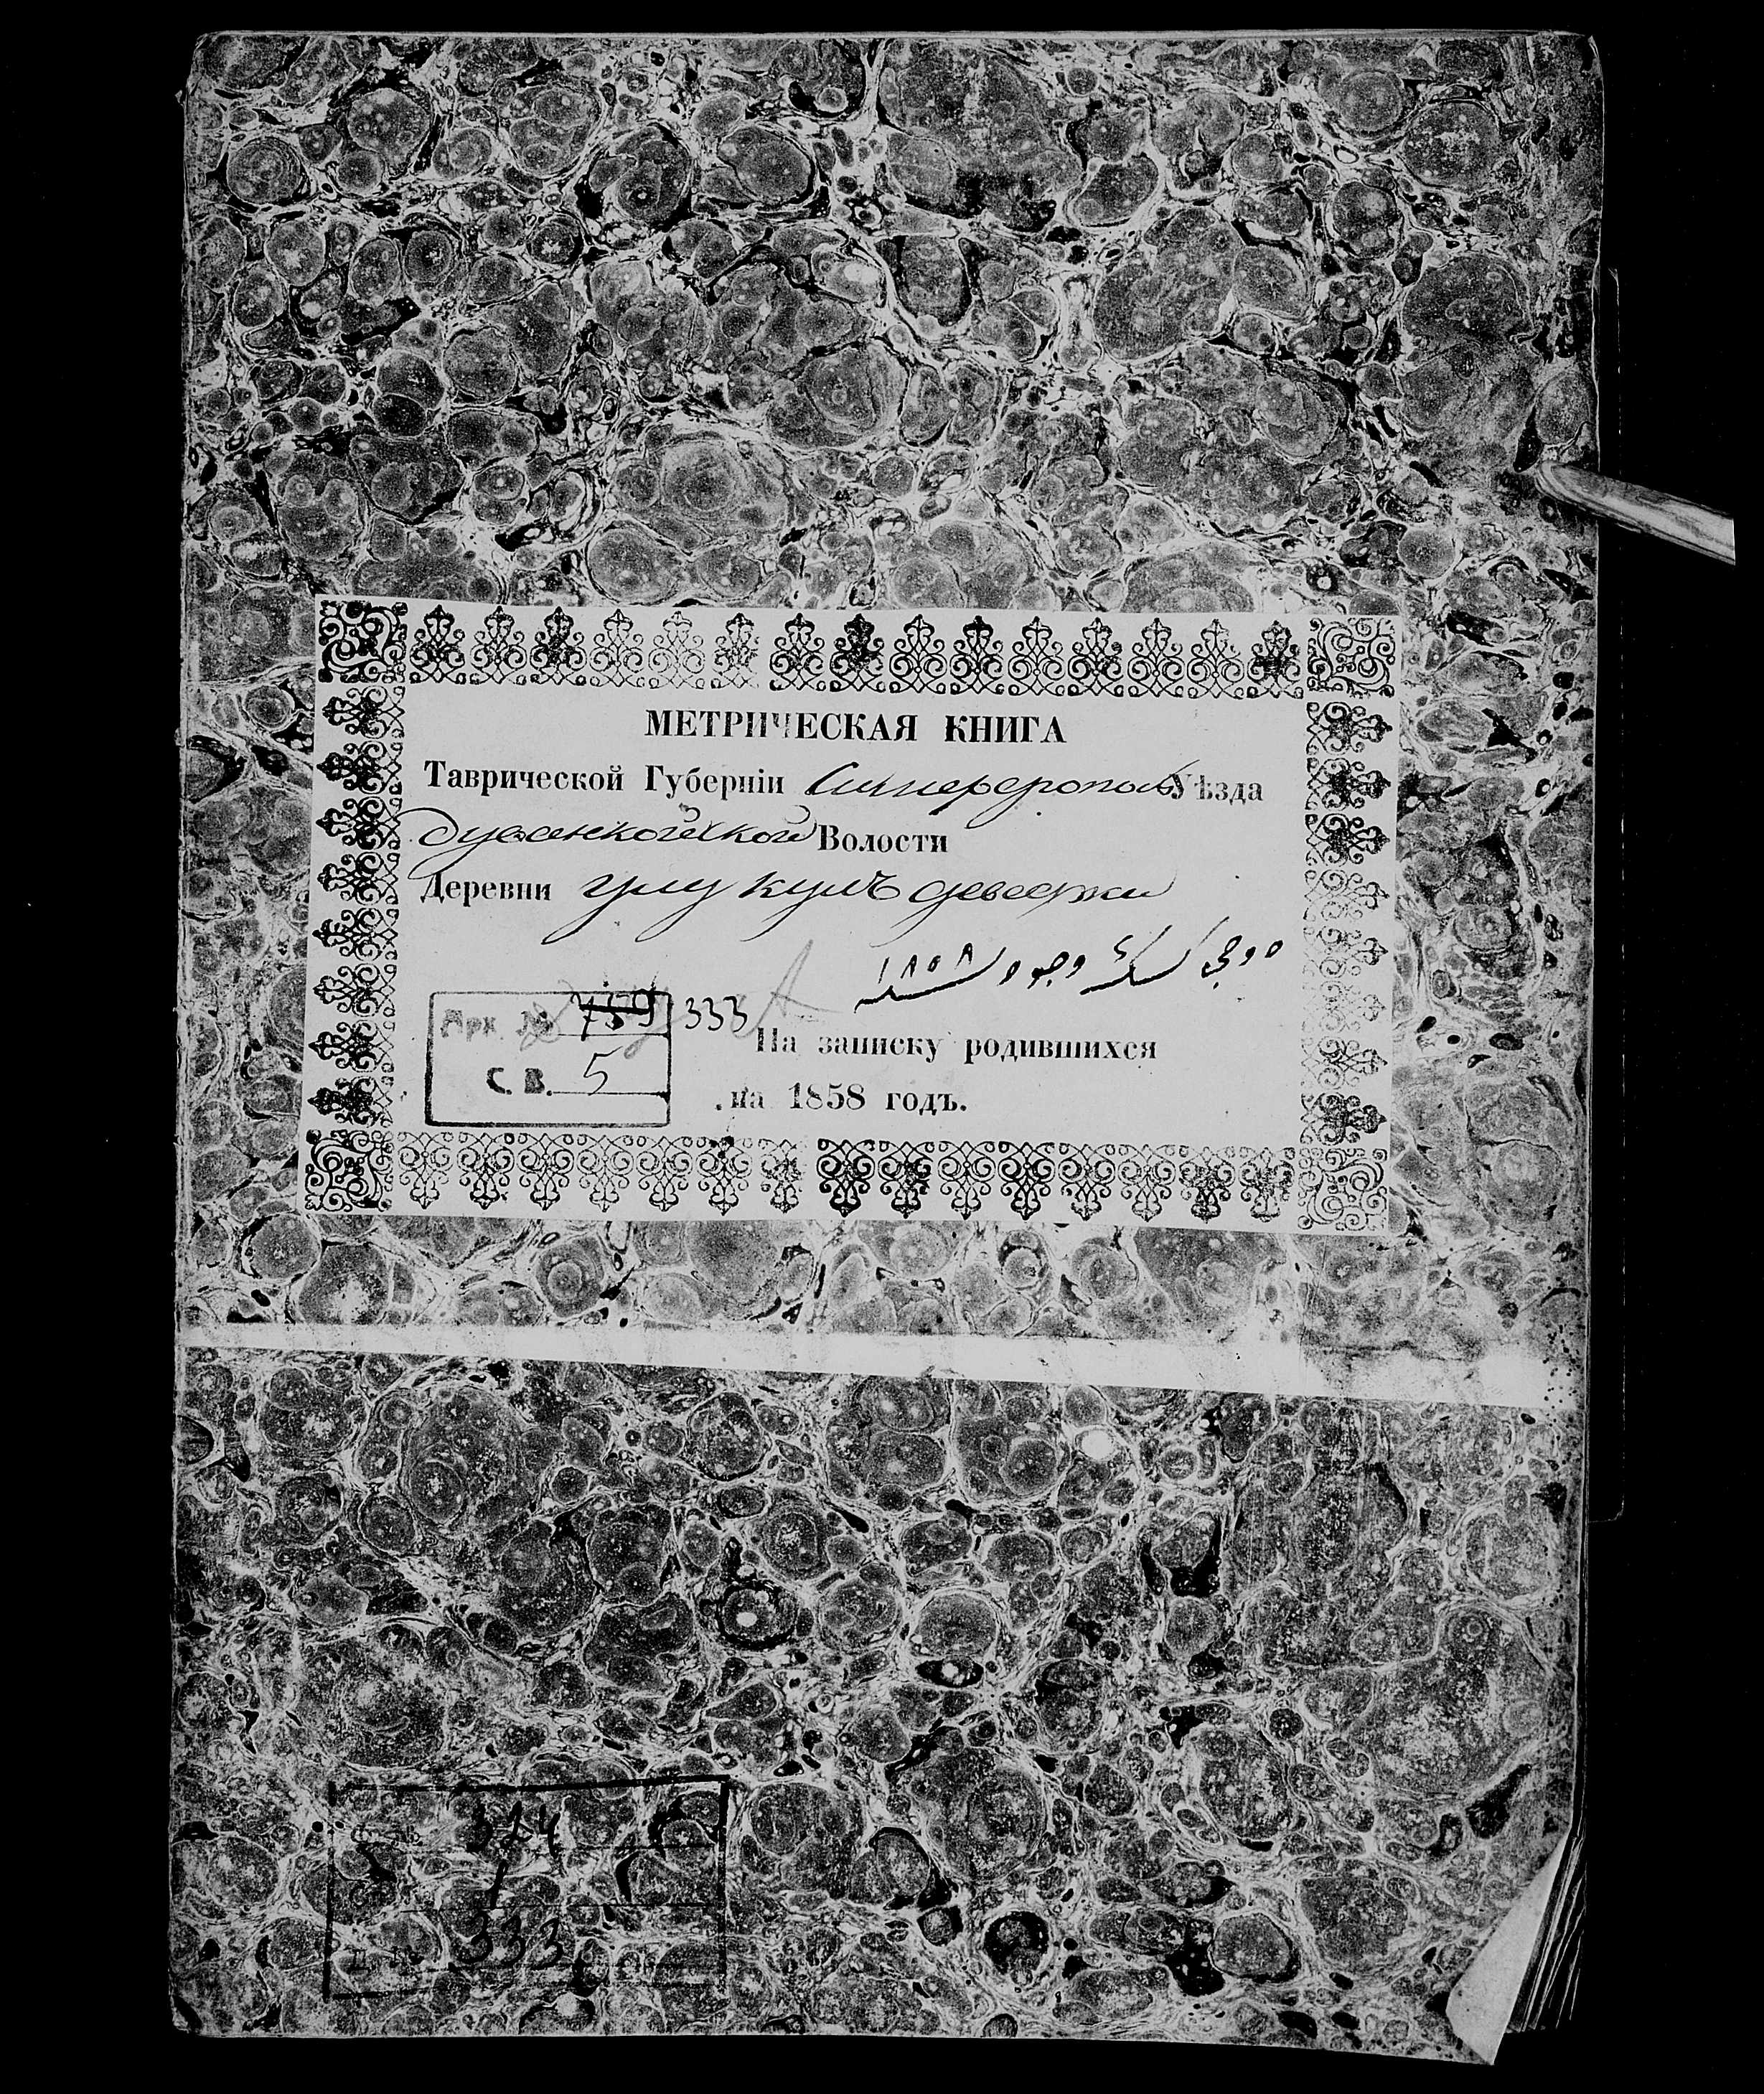 МЕТРИЧЕСКАЯ КНИГА
Таврической Губерніи Симферополь Уѣзда
Дуванкойской Волости
Деревни улу кулъ
١٨٥٨
Арк. № 759 333
С. В. 5
На записку родившихся
на 1858 годъ.
324
1
333